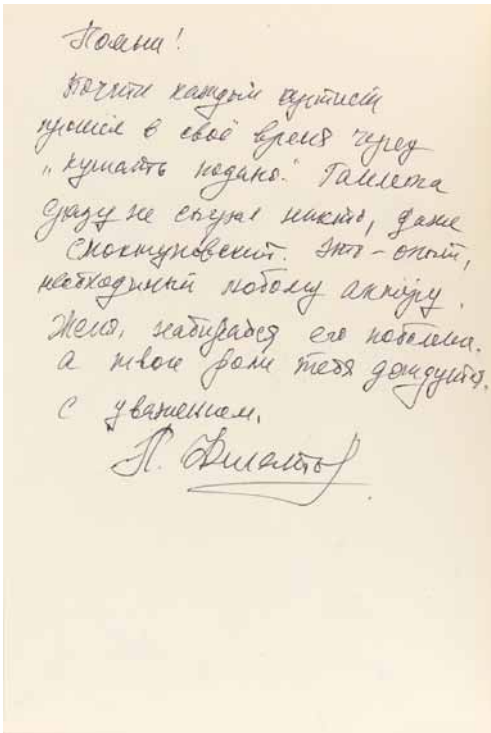 Помни!
Почти каждый артист
прошёл в своё время через
„кушать подано." Гамлета
сразу не сыграл никто, даже
Смоктуновский. Это – опыт,
необходимый любому актёру.
Женя, набирайся его побольше.
а твои роли тебя дождутся.
С уважением,